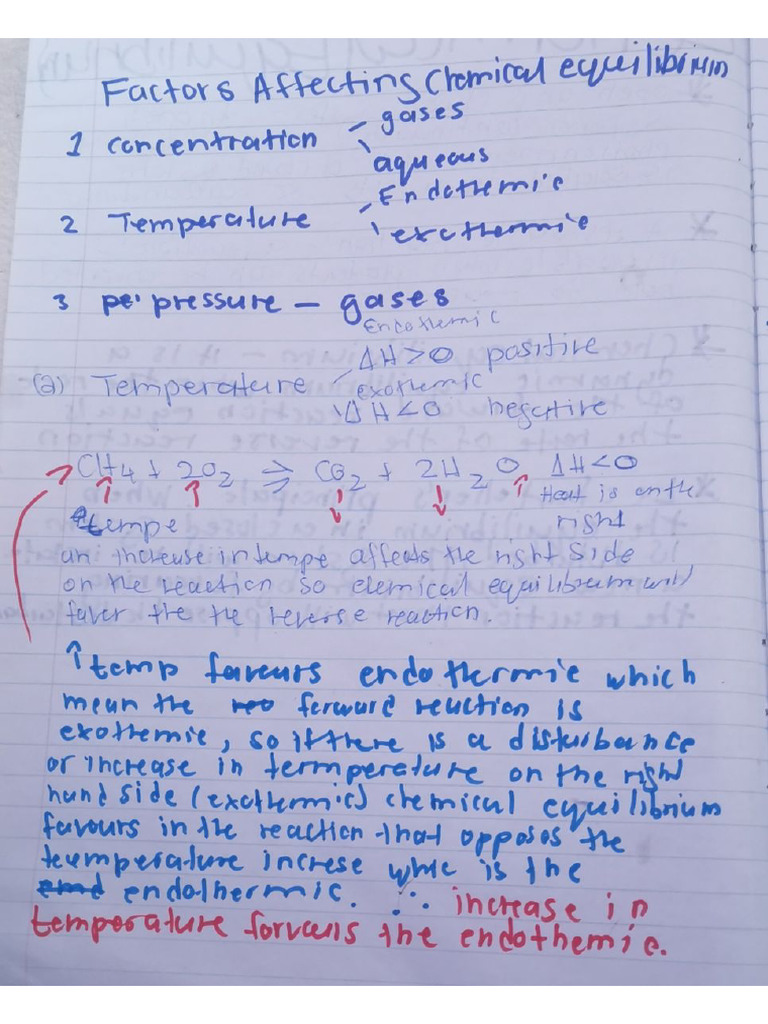 Factors Affecting Chemical equilibrium
1 concentration – gases
\ aqueous
2 Temperature – Endothermic
\ exothermic
3 pe' pressure – gases
Endothermic
(a) Temperature – ΔH>0 positive
exothermic
ΔH<0 negative
CH4 + 2O2 ⇌ CO2 + 2H2O ΔH<0
↑ ↑ ↓ ↓ ↑ Heat is on the
tempe right
an increase in tempe affects the right side
on the reaction so chemical equilibrium will
faver the the reverse reaction.
↑ temp favours endothermic which
mean the forward reaction is
exothermic, so if there is a disturbance
or increase in termperature on the right
hand side (exothermic) chemical equilibrium
favours in the reaction that opposes the
temperature increse whic is the
endothermic. ∴ increase in
temperature forvans the endothemic.